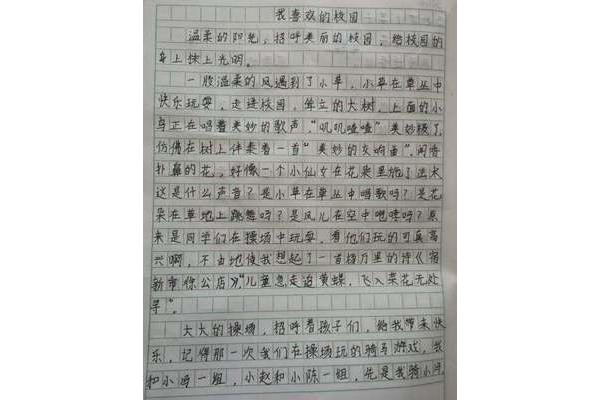 我喜欢的校园
温柔的阳光，招呼美丽的校园，给校园的
身上抹上光明。
一股温柔的风遇到了小草，小草在草丛中
快乐玩耍，走进校园，耸立的大树，上面的小
鸟正在唱着美妙的歌声，“叽叽喳喳”美妙极了，
仿佛在树上伴奏着一首“美妙的交响曲”。闻香
扑鼻的花，好像一个小仙女在花朵里施了法术
这是什么声音？是小草在草丛中唱歌吗？是花
朵在草地上跳舞吗？是风儿在空中咆哮吗？原
来是同学们在操场中玩耍，看他们玩的可真高
兴啊，不由地使我想起了一首杨万里的诗《宿
新市徐公店》，“儿童急走追黄蝶，飞入菜花无处
寻”。
大大的操场，招呼着孩子们，给我带来快
乐，记得那一次我们在操场玩的骑马游戏，我
和小冯一组，小赵和小陈一组，先是我骑小冯